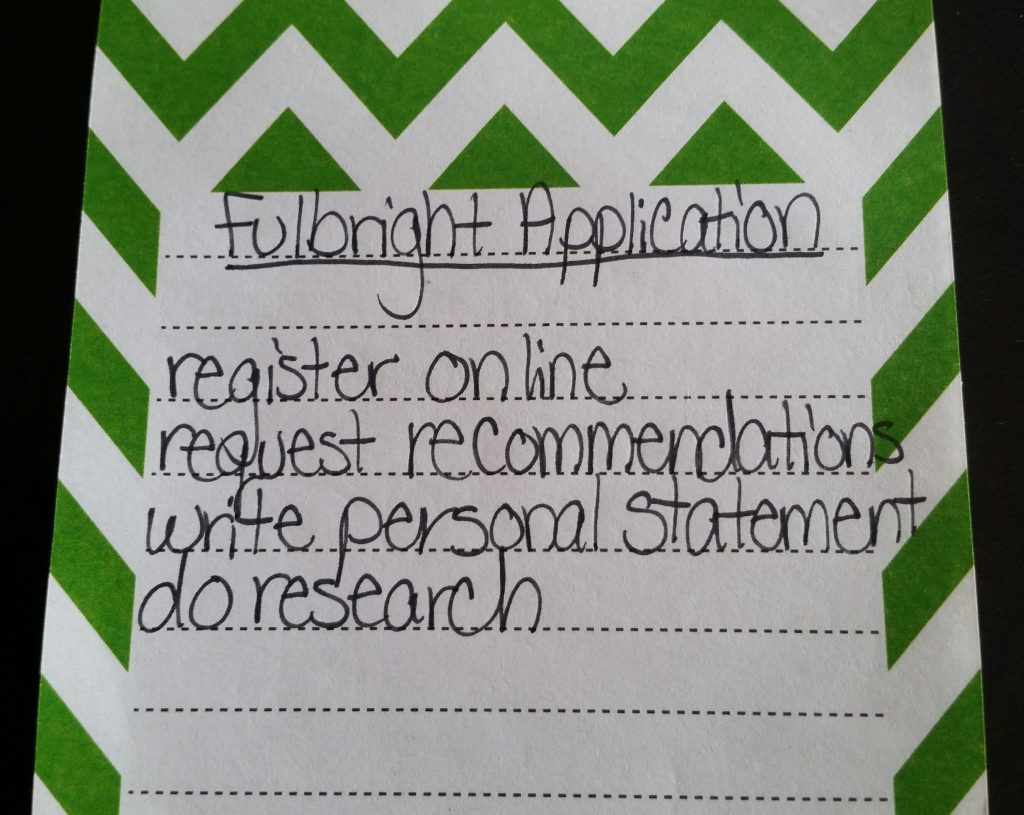 Fulbright Application
register online
request recommendations
write personal statement
do research